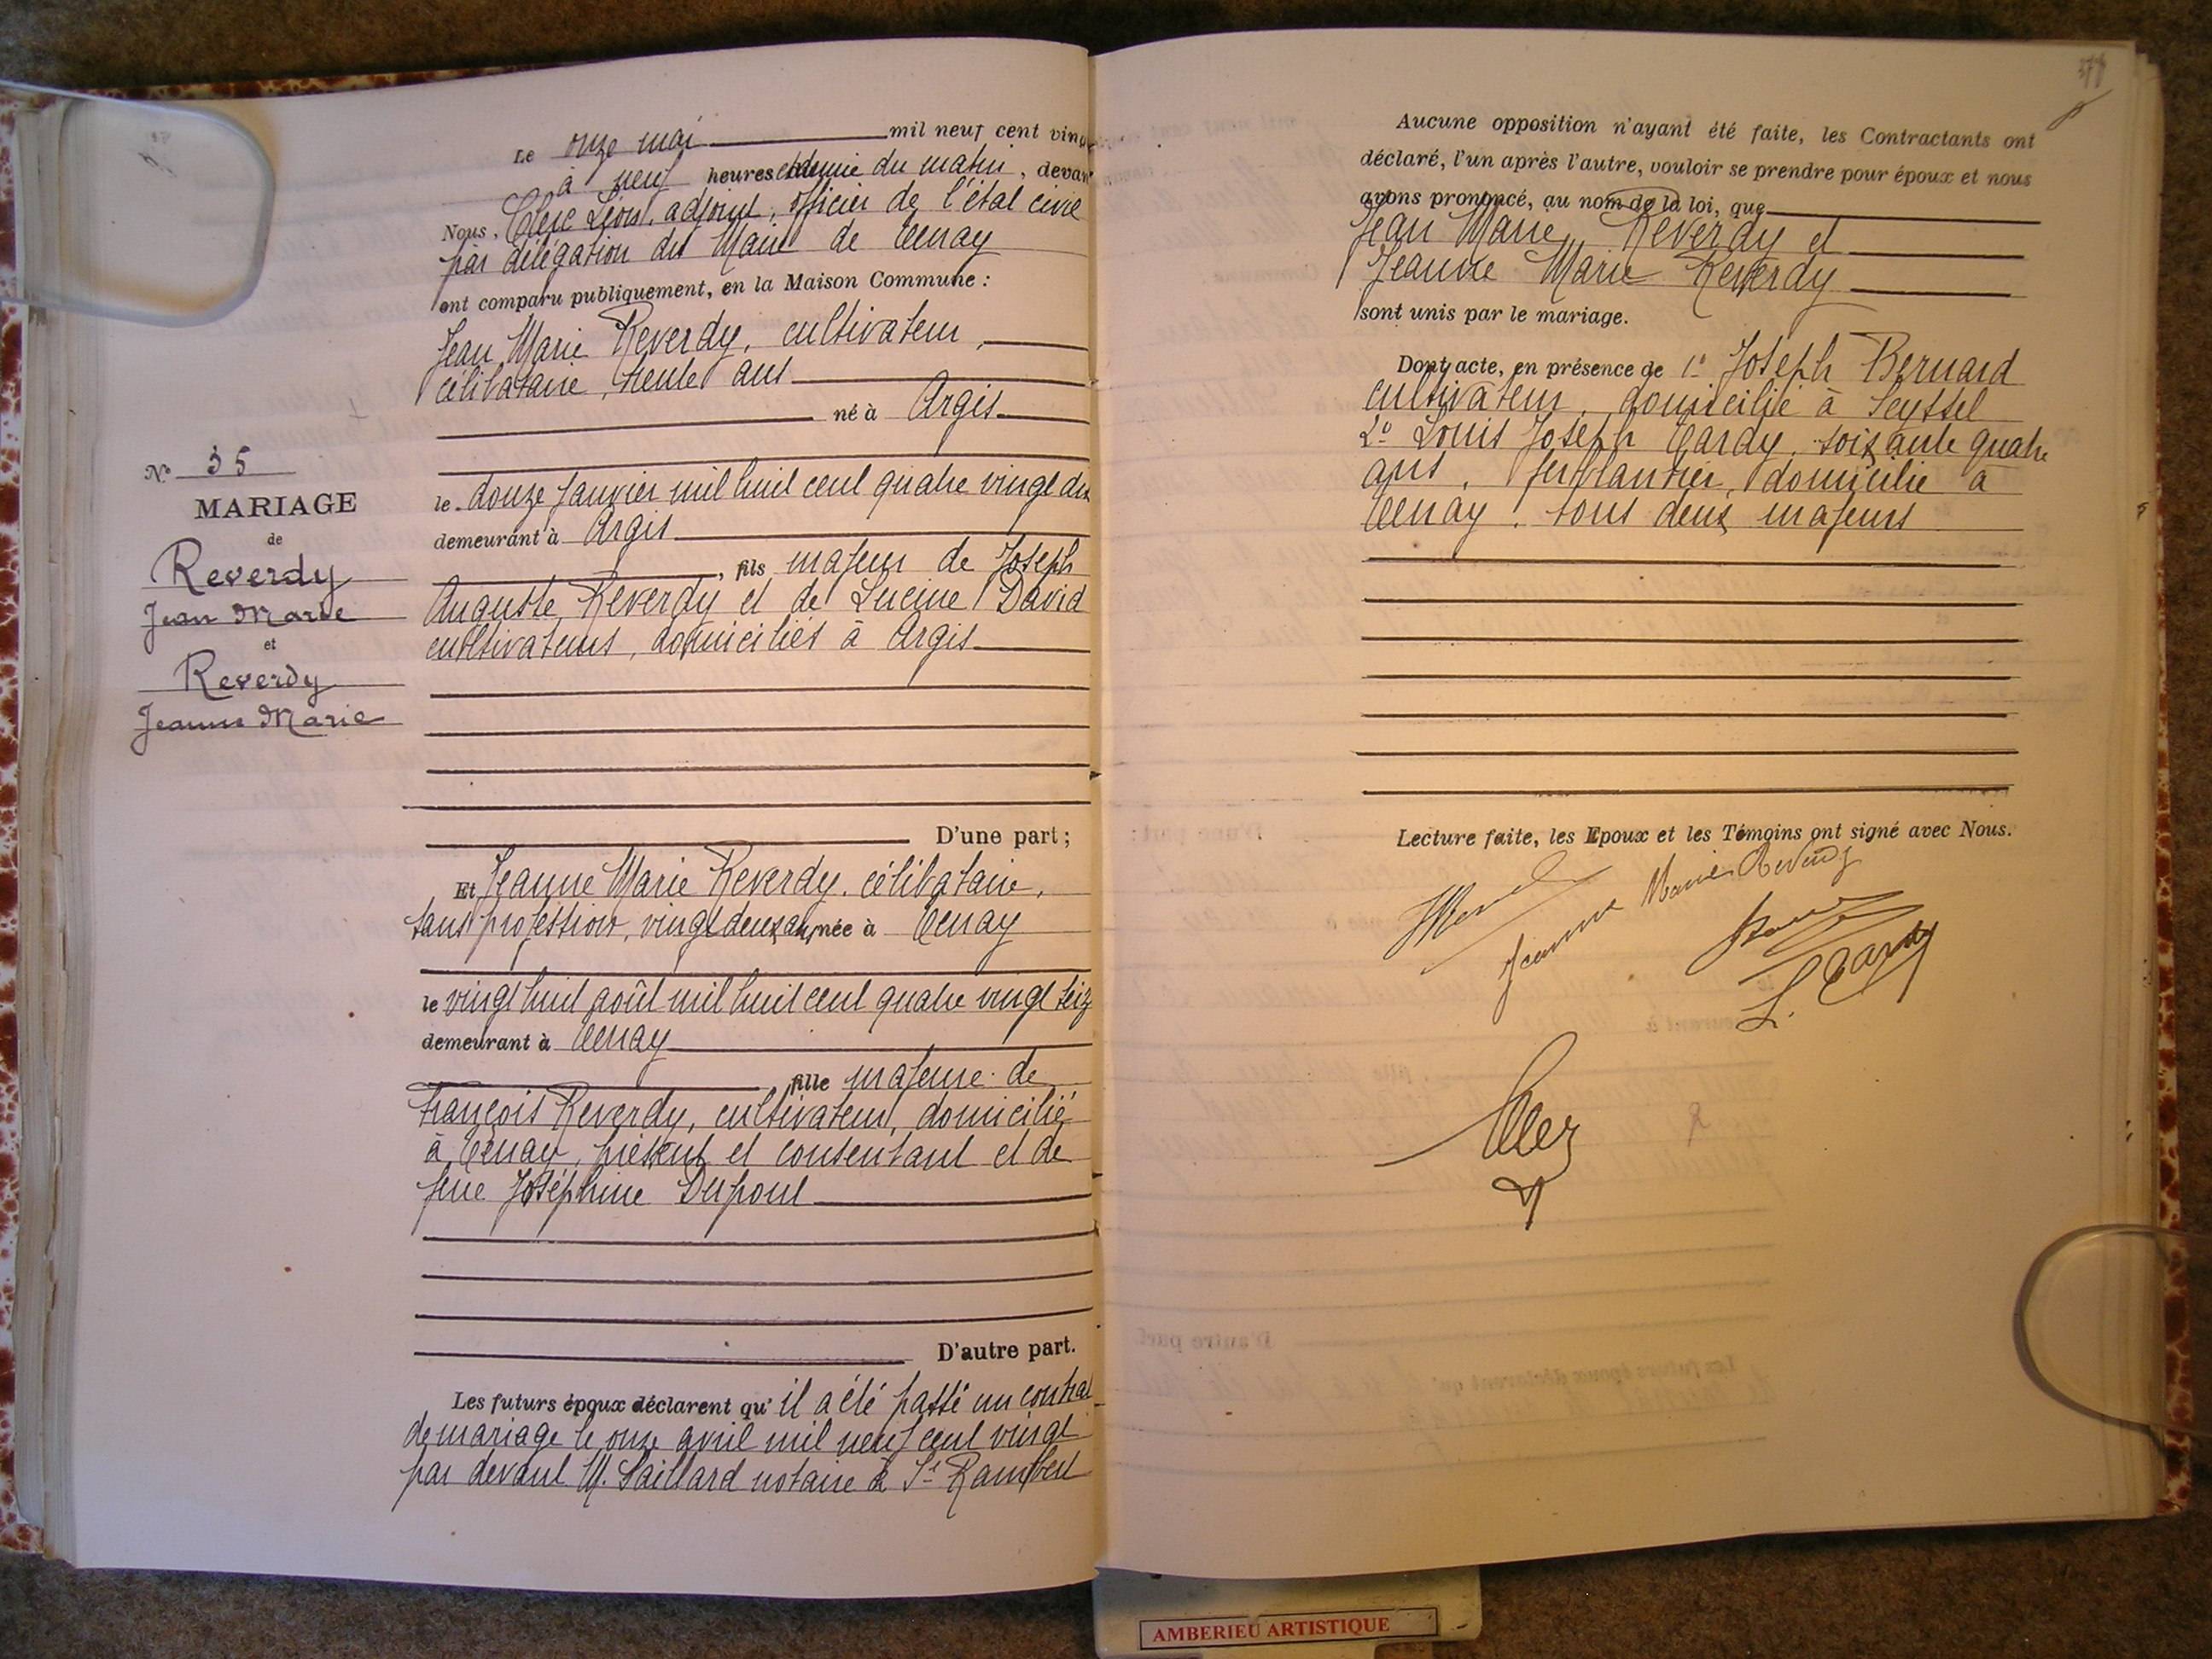 N° 35
MARIAGE
de
Reverdy
Jean Marie
et
Reverdy
Jeanne Marie
Le onze mai mil neuf cent vingt
à neuf heures et demie du matin, devant
Nous, Clerc Léon, adjoint, officier de l'état civil
par délégation du Maire de Tenay
ont comparu publiquement, en la Maison Commune :
Jean Marie Reverdy, cultivateur,
célibataire, trente ans
né à Argis
le douze janvier mil huit cent quatre vingt dix
demeurant à Argis
, fils majeur de Joseph
Auguste Reverdy et de Lucine David
cultivateurs, domiciliés à Argis
D'une part ;
Et Jeanne Marie Reverdy, célibataire,
sans profession, vingt deux ans, née à Tenay
le vingt huit août mil huit cent quatre vingt seiz
demeurant à Tenay
fille majeure de
François Reverdy, cultivateur, domicilié
à Tenay, présent et consentant et de
feue Joséphine Dupont
D'autre part.
Les futurs époux déclarent qu'il a été passé un contrat
de mariage le onze avril mil neuf cent vingt
par devant M. Saillard notaire à St Rambert
Aucune opposition n'ayant été faite, les Contractants ont
déclaré, l'un après l'autre, vouloir se prendre pour époux et nous
avons prononcé, au nom de la loi, que
Jean Marie Reverdy et
Jeanne Marie Reverdy
sont unis par le mariage.
Dont acte, en présence de 1° Joseph Bernard
cultivateur, domicilié à Seyssel
2° Louis Joseph Tardy, soixante quatre
ans, ferblantier, domicilié à
Tenay. tous deux majeurs
Lecture faite, les Epoux et les Témoins ont signé avec Nous.
Jeanne Marie Reverdy
L. Tardy
Clerc
AMBERIEU ARTISTIQUE